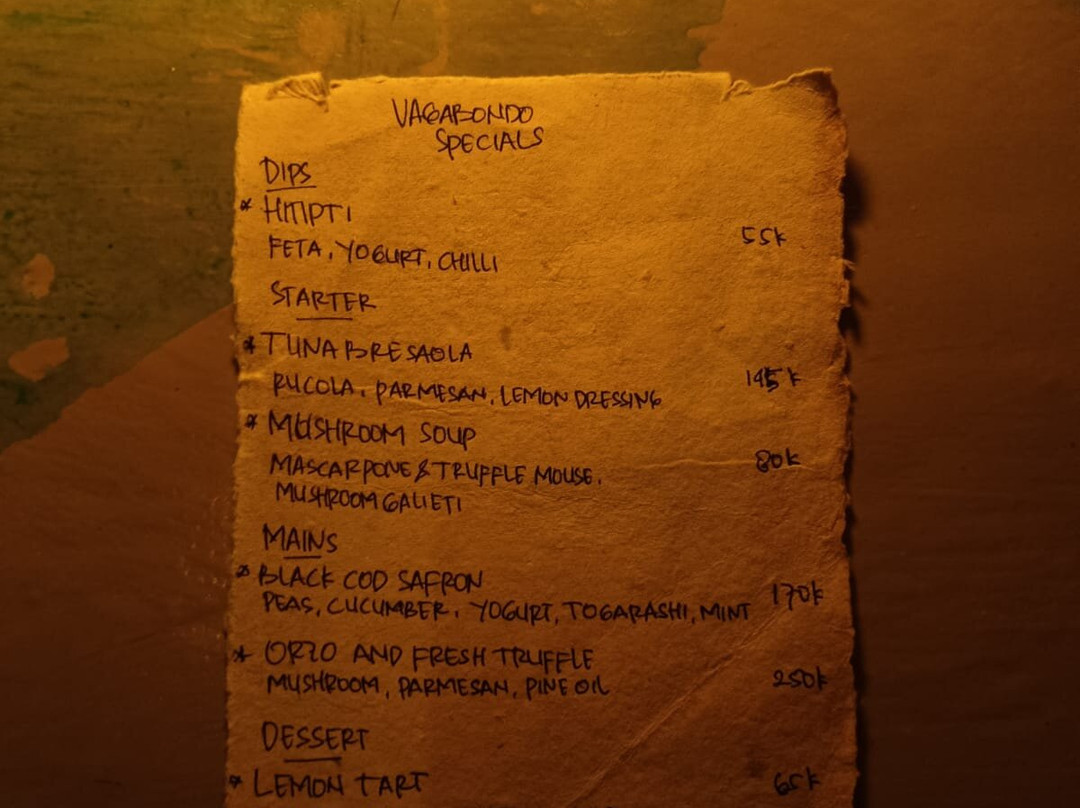 VAGABONDO
SPECIALS
DIPS
* HTIPTI
FETA, YOGURT, CHILLI 55k
STARTER
* TUNA BRESAOLA
RUCOLA, PARMESAN, LEMON DRESSING 145k
* MUSHROOM SOUP
MASCARPONE & TRUFFLE MOUSE, 80k
MUSHROOM GALIETI
MAINS
* BLACK COD SAFRON
PEAS, CUCUMBER, YOGURT, TOGARASHI, MINT 170k
* ORZO AND FRESH TRUFFLE
MUSHROOM, PARMESAN, PINE OIL 250k
DESSERT
* LEMON TART 65k